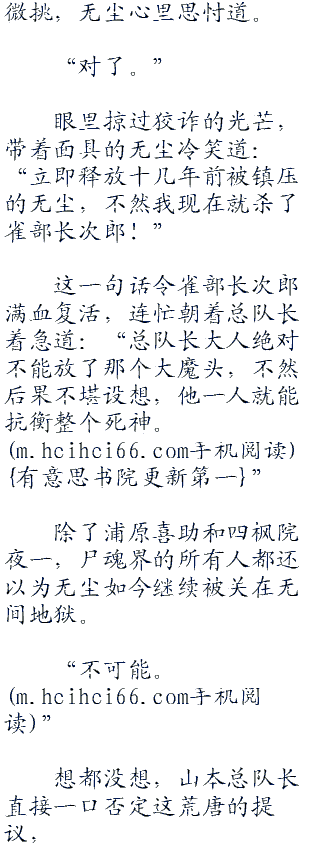 微挑，无尘心里思忖道。
“对了。”
眼里掠过狡诈的光芒，
带着面具的无尘冷笑道：
“立即释放十几年前被镇压
的无尘，不然我现在就杀了
雀部长次郎！”
这一句话令雀部长次郎
满血复活，连忙朝着总队长
着急道：“总队长大人绝对
不能放了那个大魔头，不然
后果不堪设想，他一人就能
抗衡整个死神。
(m.hcihci66.com手机阅读)
{有意思书院更新第一}”
除了浦原喜助和四枫院
夜一，尸魂界的所有人都还
以为无尘如今继续被关在无
间地狱。
“不可能。
(m.hcihci66.com手机阅
读)”
想都没想，山本总队长
直接一口否定这荒唐的提
议，